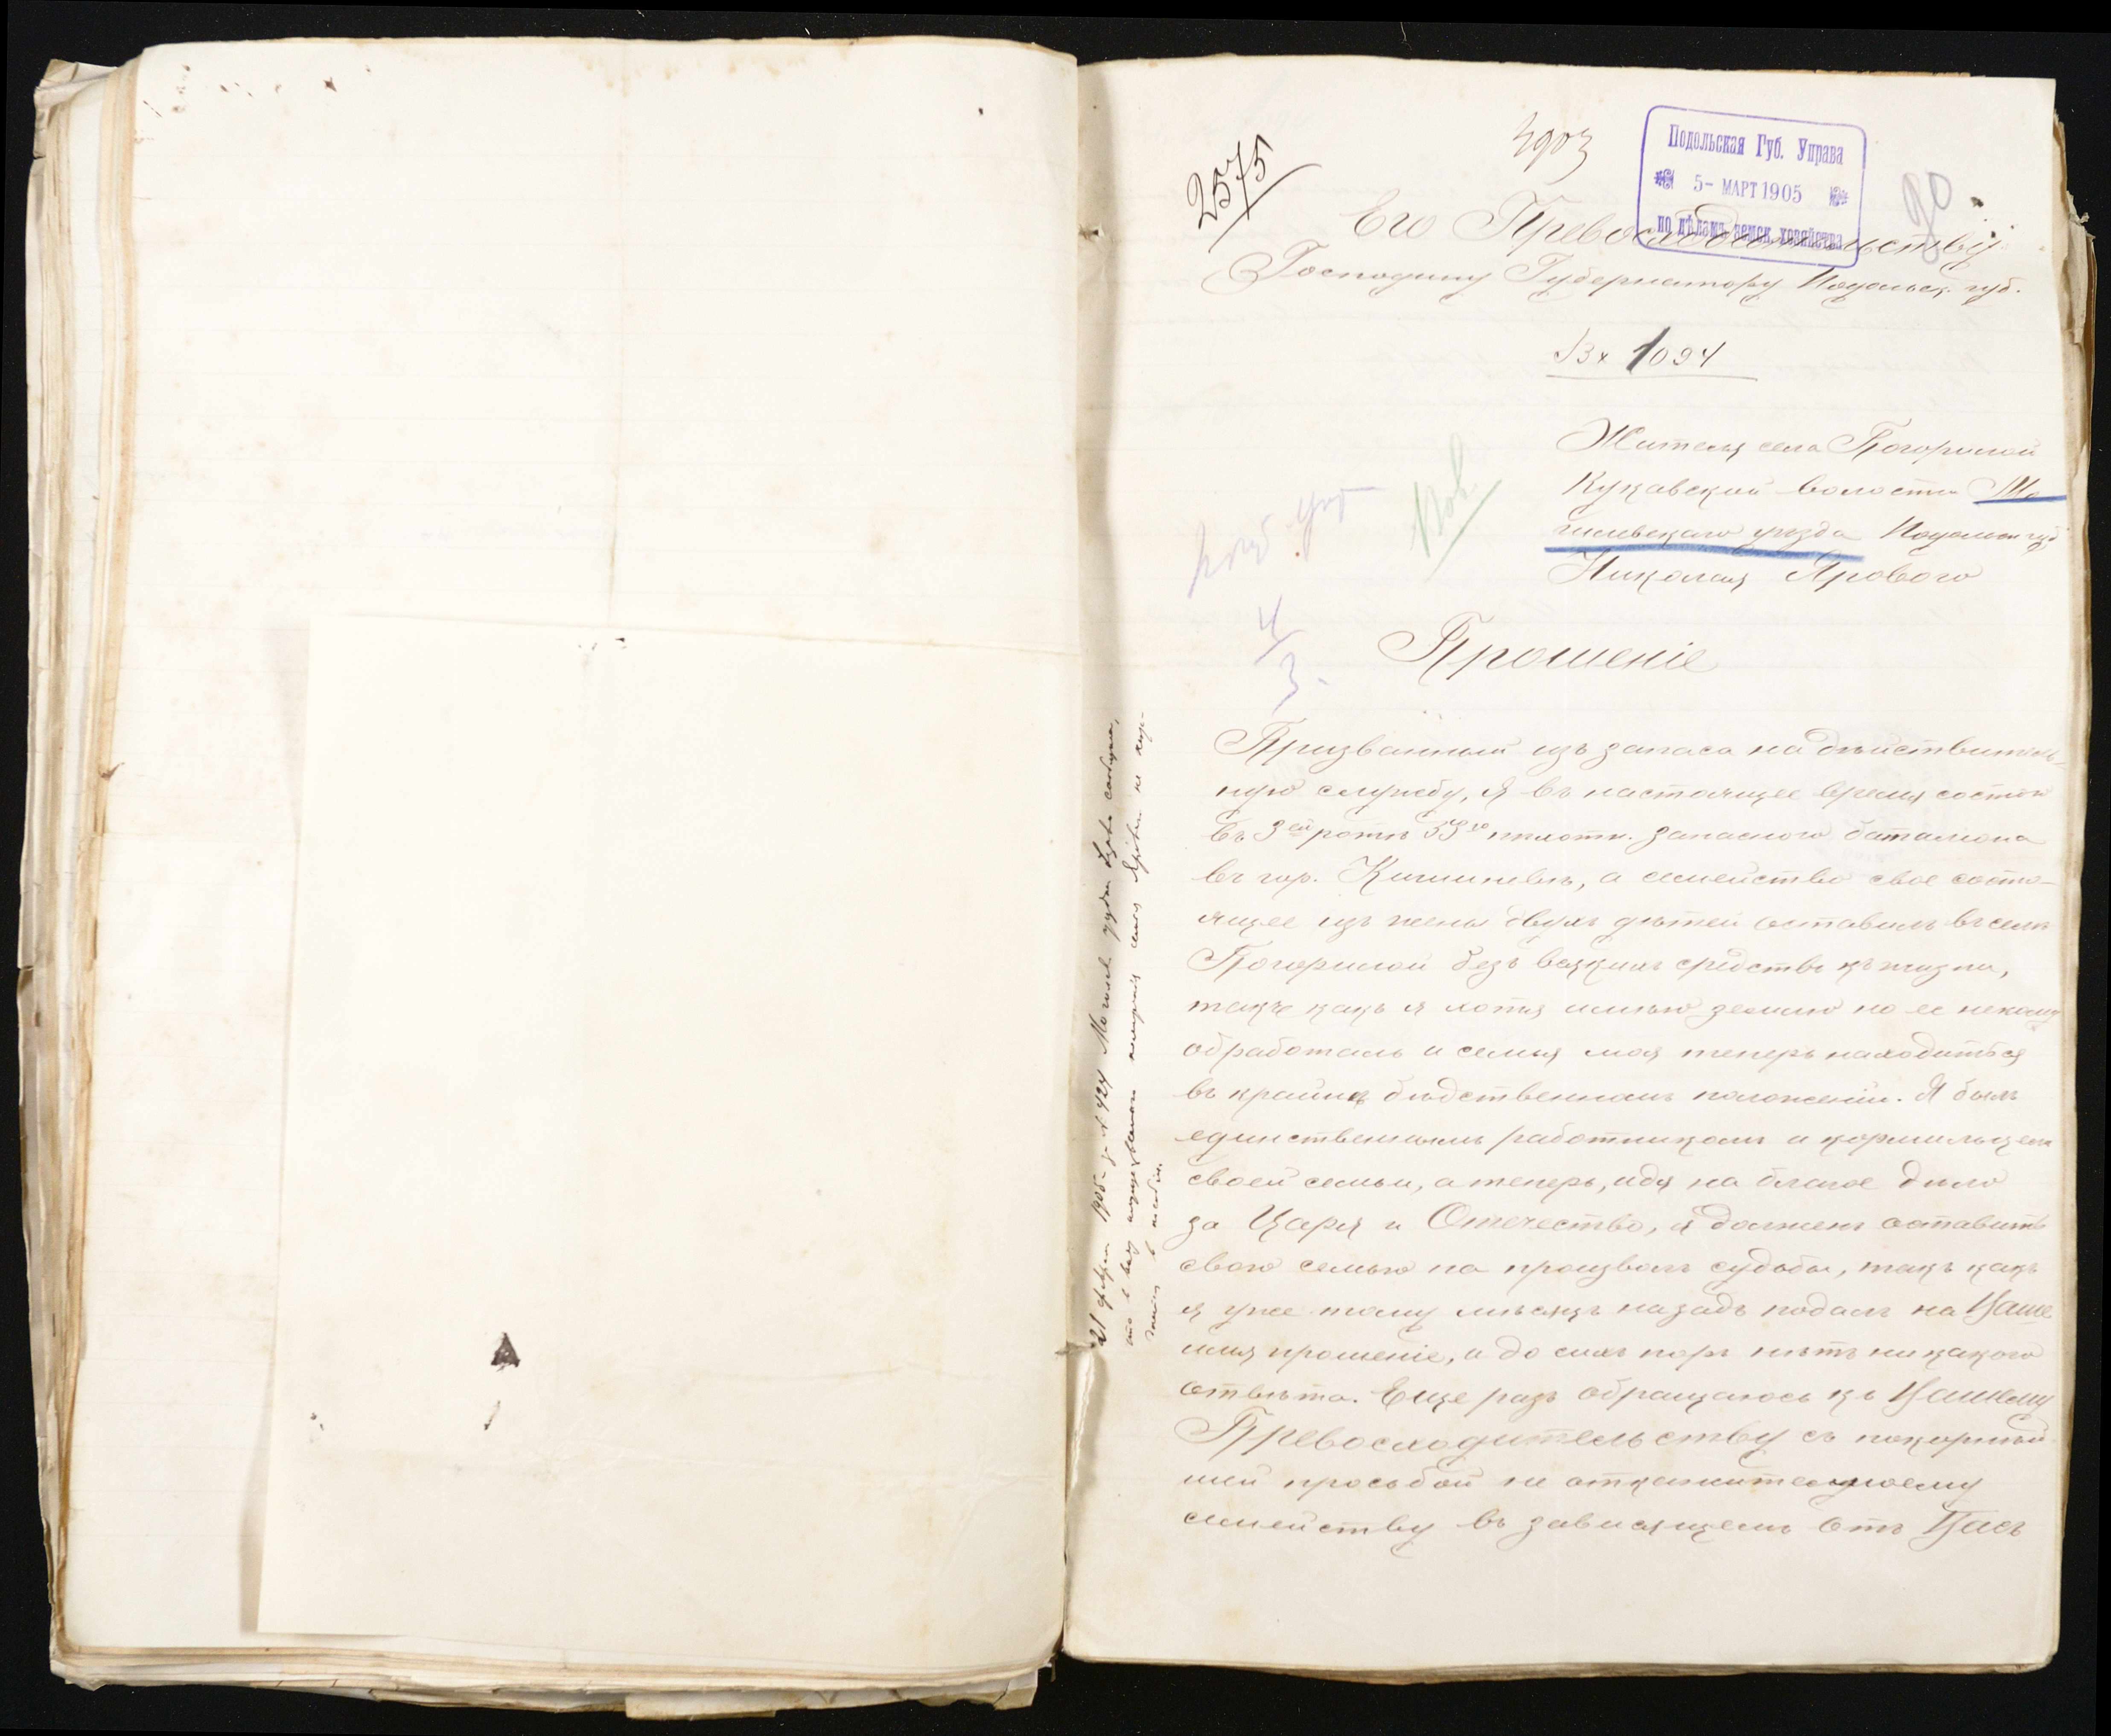 2575
Подольская Губ. Управа
5- МАРТ 1905
по дѣламъ земск. хозяйства
Его Превосходительству
Господину Губернатору Подольск. губ.
Вх 1094
Жителя села Погорилой
Кукавской волости Мо
гилевскаго уезда Подольск губ
Николая Ярового
4/3.
Прошеніе
Призванный изъ запаса на дѣйствитель-
ную службу, я въ настоящее время состою
въ 3ей ротѣ запасного баталіона
въ гор. Кишиневѣ, а семейство свое состо-
ящее изъ жены двухъ дѣтей оставилъ въ селѣ
Погорилой безъ всякихъ средствъ къ жизни,
такъ какъ я хотя имѣю землю но ее некому
обработать и семья моя теперь находиться
въ крайне бѣдственномъ положеніи. Я былъ
единственнымъ работникомъ и кормильцемъ
своей семьи, а теперь, идя на благое дѣло
за Царя и Отечество, я долженъ оставить
свою семью на произволъ судьбы, такъ какъ
я уже тому мѣсяцъ назадъ подалъ на Ваше
имя прошеніе, и до сихъ поръ нѣтъ никакого
отвѣта. Еще разъ обращаюсь къ Вашему
Превосходительству съ покорнѣй
шей просьбой не откажите моему
семейству въ зависящемъ отъ Васъ
21 февраля 1905 г. за № 424 Могилев. уездн.